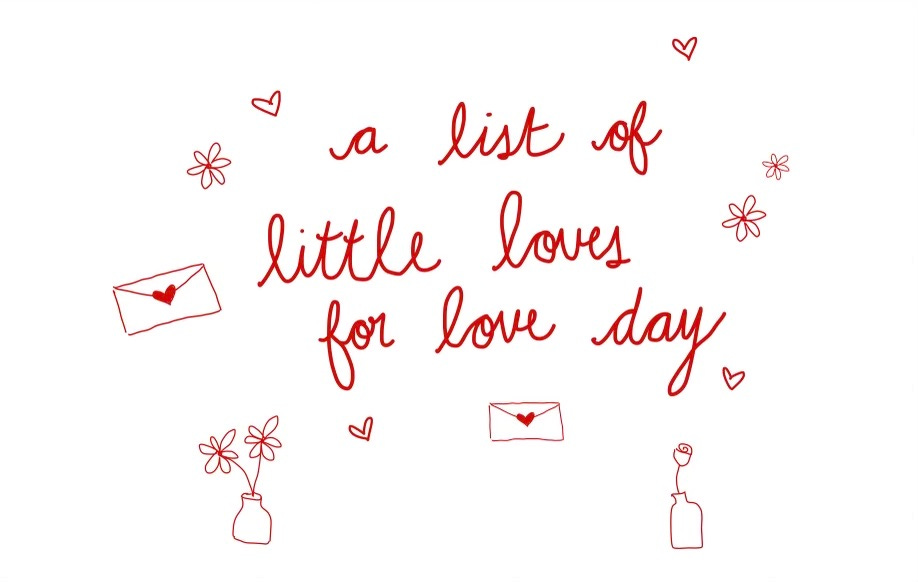 a list of
little loves
for love day